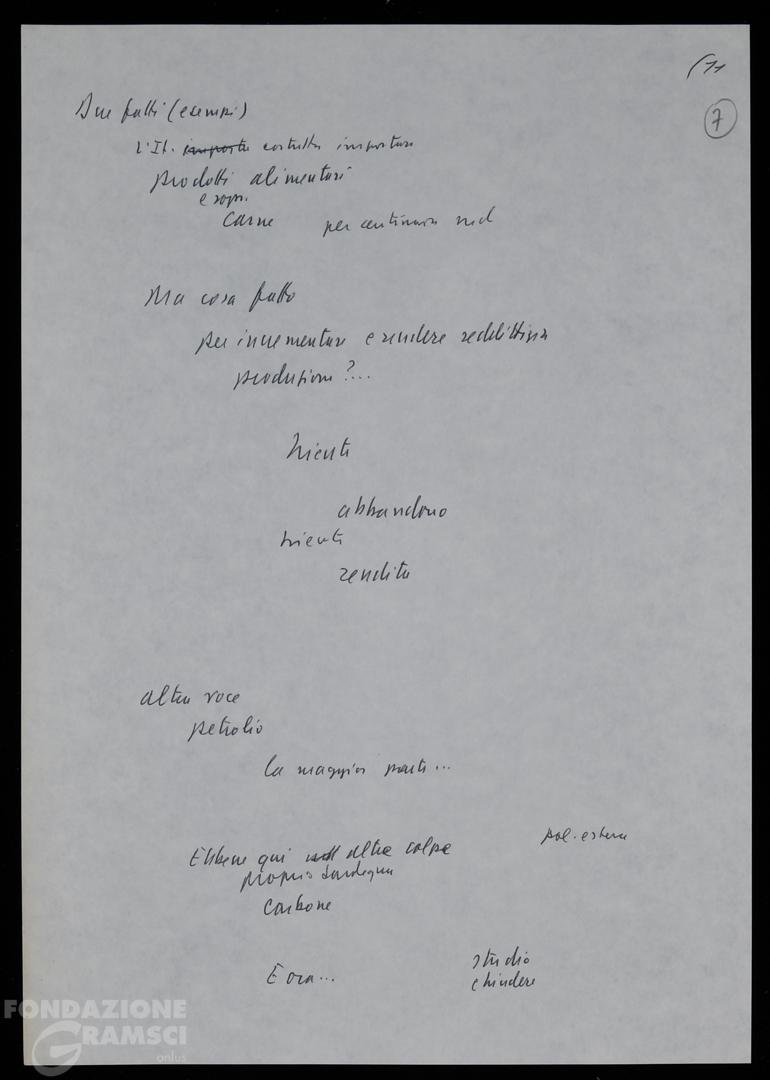 (11
7
Due fatti (esempi)
L'It. importa costretta importare
prodotti alimentari
e sopr.
carne per centinaia md
Ma cosa fatto
per incrementare e rendere redditizia
produzione?...
Niente
abbandono
niente
rendita
altra voce
petrolio
la maggior parte...
pol. estera
Ebbene qui altre colpe
proprio Sardegna
carbone
E ora... studio
chiudere
FONDAZIONE
GRAMSCI
onlus